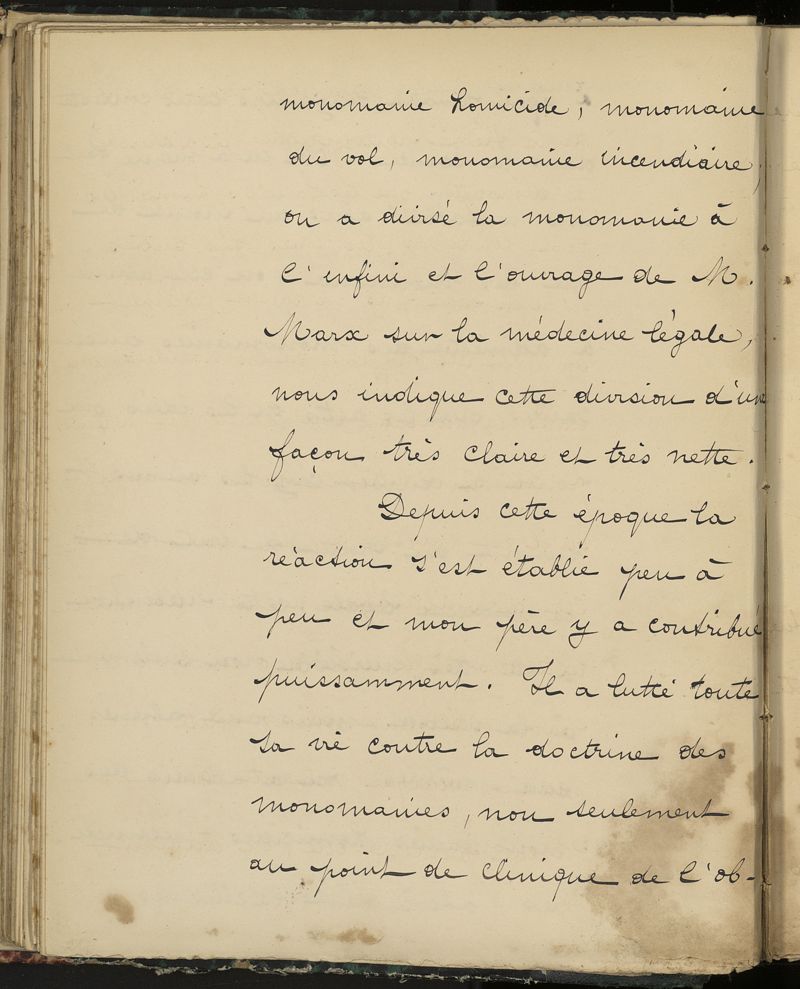 monomanie homicide, monomanie
du vol, monomanie incendiaire,
on a divisé la monomanie à
l'infini et l'ouvrage de M.
Marx sur la médecine légale,
nous indique cette division d'une
façon très claire et très nette.
Depuis cette époque la
réaction s'est établie peu à
peu et mon père y a contribué
puissamment. Il a lutté toute
sa vie contre la doctrine des
monomanies, non seulement
au point de clinique de l'ob-